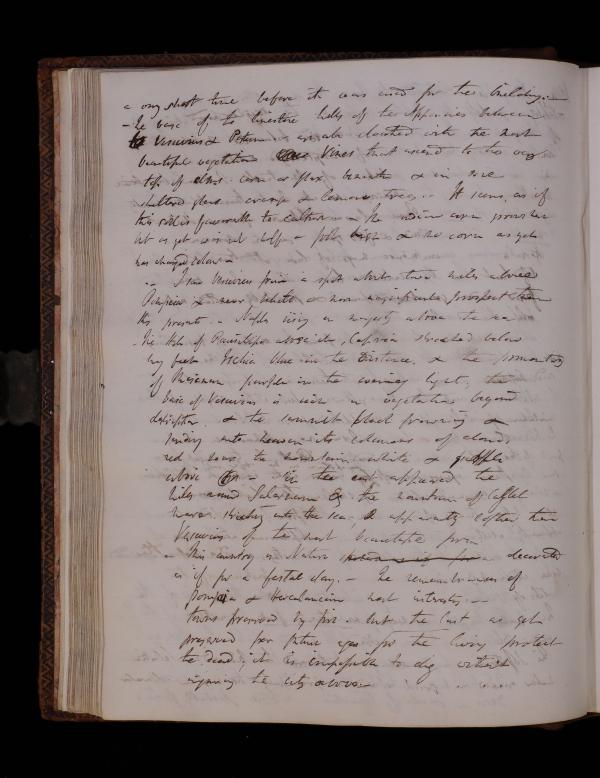 a very short time before it was used for the building. —
- The base of the limestone hills of the Appenines between
Vesuvius & Pestum are all clothed with the most
beautiful vegetation Vines that ascend to the very
top of elms corn or flax beneath & in more
sheltered places orange & lemon trees. - It seems as if
this soil is favourable to culture - the indian corn
but as yet high & the corn as yet
has changed colour -
- I saw Vesuvius from a spot about two miles above
Pompeia & never a more magnificent prospect than
this presents - Naples rising in majesty above the sea
- The Hill of Pausilippo above it, Capria stretched below
my feet Ischia blue in the distance, & the promontory
of Misenum purple in the evening light, the
base of Vesuvius is rich in vegetation beyond
description & the summit black frowning &
sending into heaven its columns of cloud,
red below the mountain white & purple
above - In the east appeared the
hills round Salernum & the mountain of Castel
mare stretching into the sea, & apparently loftier than
Vesuvius of the most beautiful form
- This country is Nature decorated
as if for a festal day. - The remembrances of
Pompeia & Herculaneum most interesting -
towns preserved by fire. but the last as yet
preserved for future ages for the living protect
the dead; it is impossible to dig without
injuring the city above